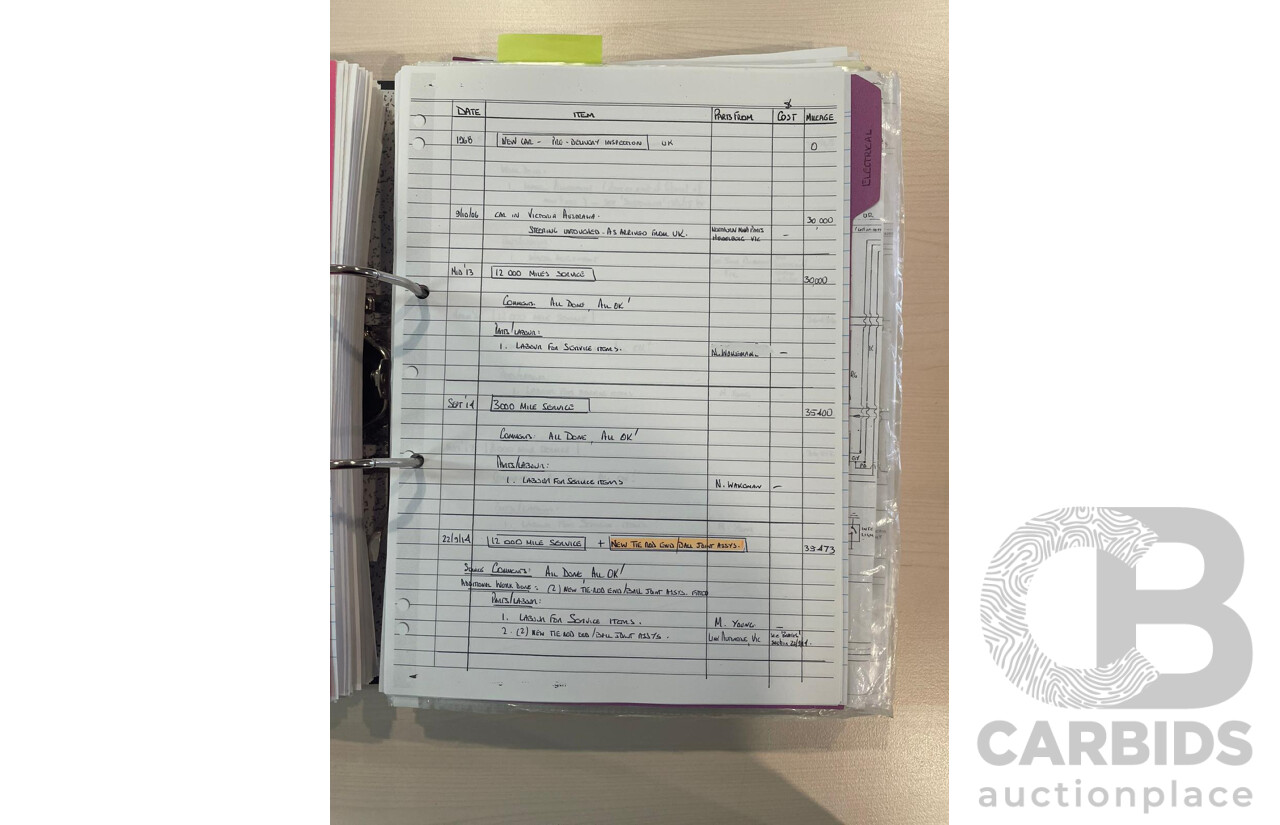 DATE ITEM PARTS FROM $ COST MILEAGE
1968 NEW CAR - PRE-DELIVERY INSPECTION UK 0
9/10/06 CAR IN VICTORIA AUSTRALIA. 30,000
STEERING UNTOUCHED. AS ARRIVED FROM UK. VIC -
AUG '13 12 000 MILES SERVICE 30,000
COMMENTS: ALL DONE, ALL OK!
PARTS/LABOUR:
1. LABOUR FOR SERVICE ITEMS. N. WAKEMAN. -
SEPT '14 3000 MILE SERVICE 35400
COMMENTS: ALL DONE, ALL OK!
PARTS/LABOUR:
1. LABOUR FOR SERVICE ITEMS N. WAKEMAN -
22/9/14 12 000 MILE SERVICE + NEW TIE ROD END/BALL JOINT ASSYS. 35473
SERVICE COMMENTS: ALL DONE, ALL OK!
ADDITIONAL WORK DONE: (2) NEW TIE-ROD END/BALL JOINT ASSYS. FITTED
PARTS/LABOUR:
1. LABOUR FOR SERVICE ITEMS. M. YOUNG -
2. (2) NEW TIE ROD END/BALL JOINT ASSYS. VIC
ELECTRICAL
CB
CARBIDS
auctionplace